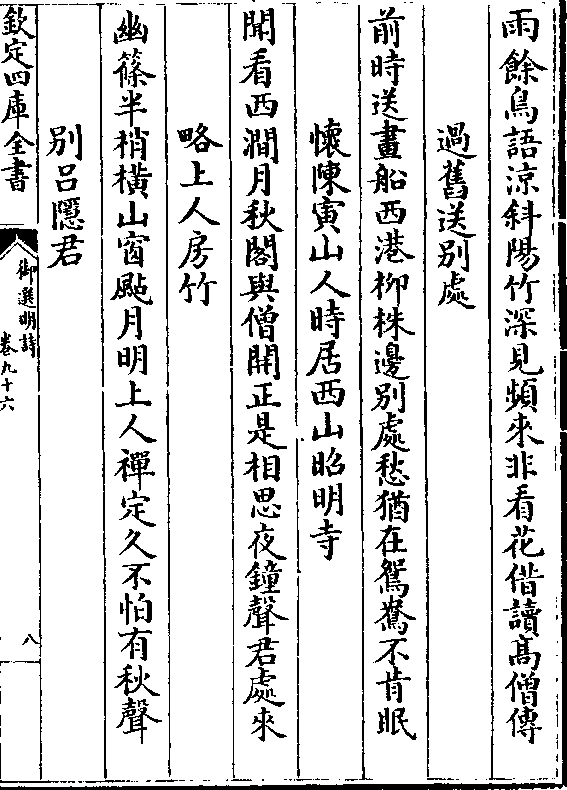 雨餘鳥語涼斜陽竹深見頻來非看花偕讀髙僧傳
過舊送別處
前時送畫船西港柳株邊別處愁猶在鴛鴦不肯眠
懷陳寅山人時居西山昭明寺
閒看西澗月秋閣與僧開正是相思夜鐘聲君處來
略上人房竹
幽篠半梢橫山窗颭月明上人禪定久不怕有秋聲
別呂隱君
欽定四庫全書
御選明詩
卷九十六
八